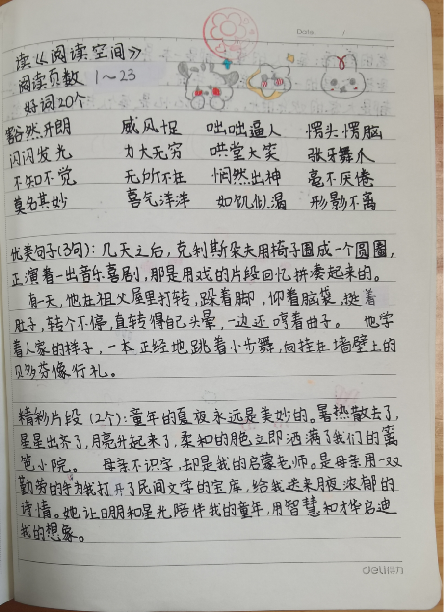 Date
读《阅读空间》
阅读页数 1~23
好词20个
豁然开朗 威风凛 咄咄逼人 愣头愣脑
闪闪发光 力大无穷 哄堂大笑 张牙舞爪
不知不觉 无所不在 悄然出神 毫不厌倦
莫名其妙 喜气洋洋 如饥似渴 形影不离
优美句子(3句):几天之后,克利斯朵夫用椅子围成一个圆圈,
正演着一出音乐喜剧,那是用戏的片段回忆拼凑起来的。
有一天,他在祖父屋里打转,跺着脚,仰着脑袋,挺着
肚子,转个不停,直转得自己头晕,一边还哼着曲子。 他学
着人家的样子,一本正经地跳着小步舞,向挂在墙壁上的
贝多芬像行礼。
精彩片段(2个):童年的夏夜永远是美妙的。暑热散去了,
星星出齐了,月亮升起来了,柔和的月色立即洒满了我们的篱
笆小院。 母亲不识字,却是我的启蒙老师。是母亲用一双
勤劳的手为我打开了民间文学的宝库,给我送来月夜浓郁的
诗情。她让明月和星光陪伴我的童年,用智慧和才华启迪
我的想象。
deli得力